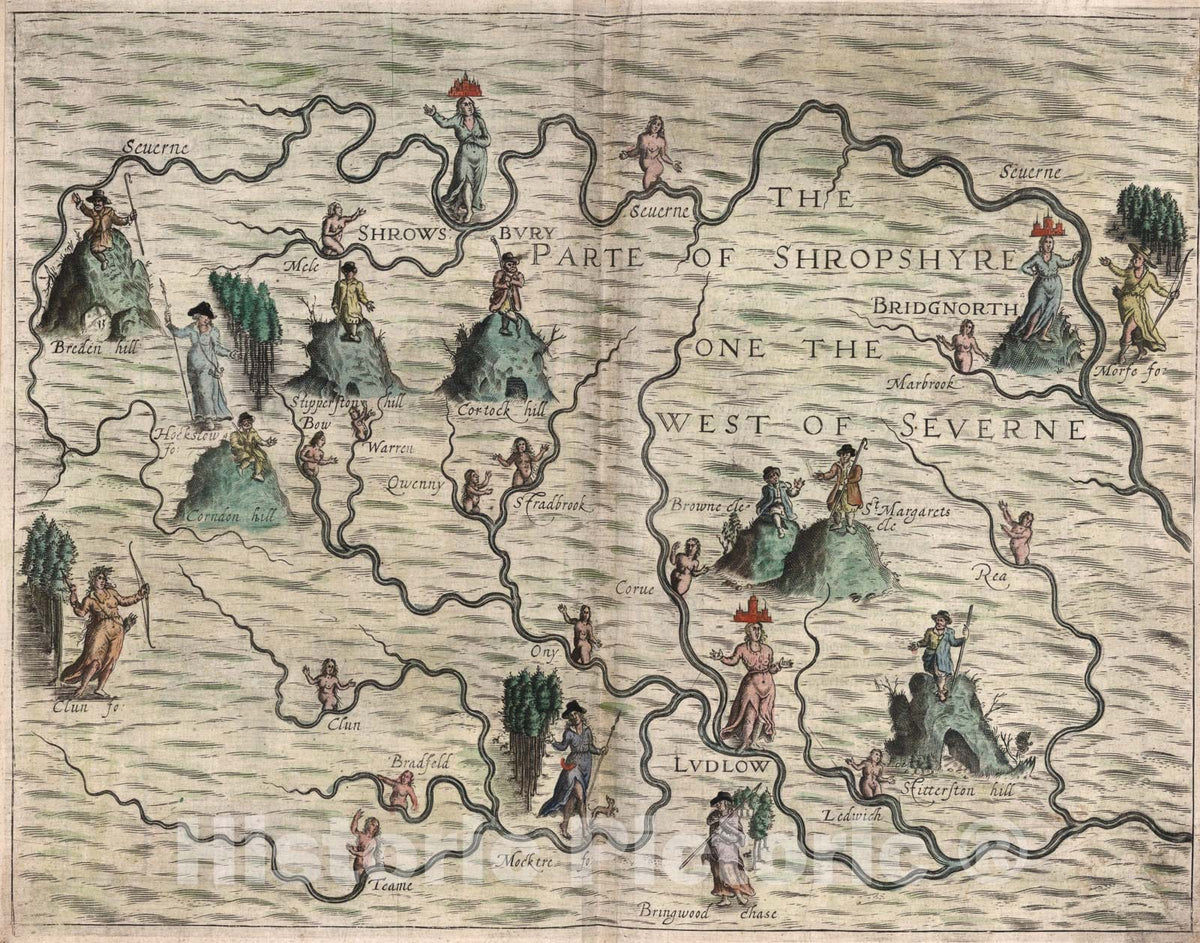 Seuerne
Seuerne
Seuerne
SHROWSBVRY
THE
PARTE OF SHROPSHYRE
ONE THE
WEST OF SEVERNE
Mele
Breden hill
BRIDGNORTH
Marbrook
Morfe fo:
Stipperston hill
Cortock hill
Hockstow fo:
Bow
Warren
Qwenny
Stradbrook
Corndon hill
Browne cle
St Margarets cle
Corue
Rea
Ony
Clun fo:
Clun
LVDLOW
Bradfeld
Stitterston hill
Ledwich
Teame
Mocktre fo
Bringwood chase
Historic Pictoric ©